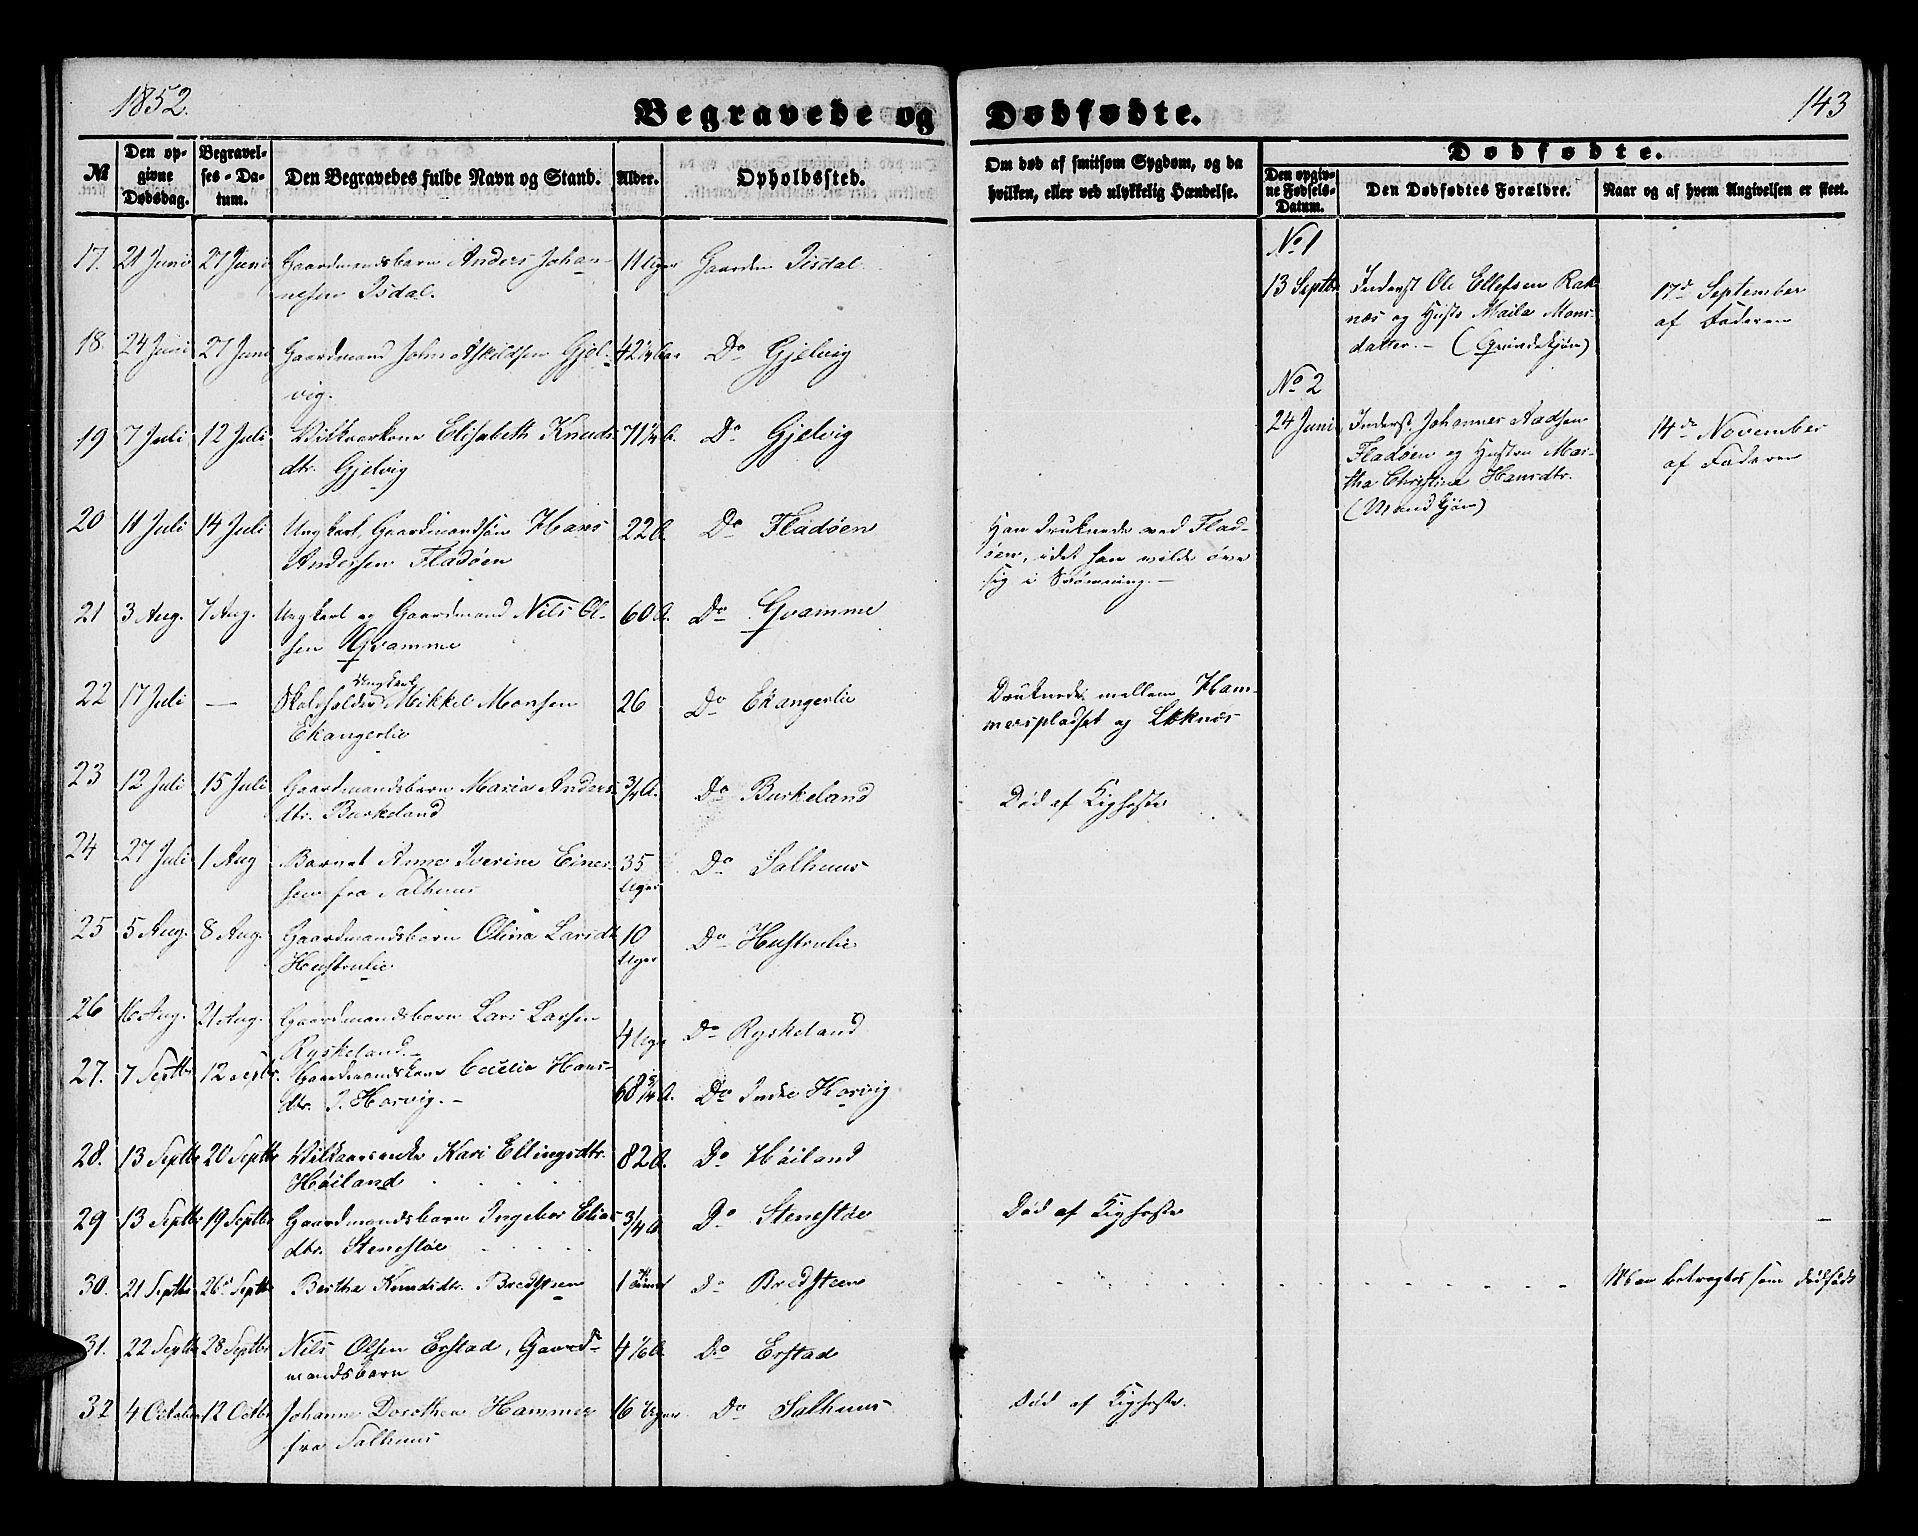 1852.
Begravede og Dødfødte.
143
№ Den op-givne Dødsdag. Begravel-ses-Da-tum. Den Begravedes fulde Navn og Stand. Alder. Opholdssted. Om død af smitsom Sygdom, og da hvilken, eller ved ulykkelig Hændelse.
Dødfødte.
Den opgiv-ne Fødsels-Datum. Den Dødfødtes Forældre. Naar og af hvem Angivelsen er skeet.
17. 21 Juni 27 Juni Gaardmandsbarn Anders Johan-
nesen Isdal. 11 Uger Gaarden Isdal.
18. 24 Juni 27 Juni Gaardmand John Askildsen Gjel-
vig. 42 Do Gjelvig
19 7 Juli 12 Juli Vilkaarkone Elisabeth Knuds
dtr. Gjelvig 71 Do Gjelvig
20 11 Juli 14 Juli Ungkarl, Gaardmandsøn Hans
Andersen Fladøen 22 A. Do Fladøen
Han druknede ved Flad-
øen, idet han vilde øve
sig i Svømning.
21 3 Aug. 7 Aug. Ungkarl og Gaardmand Nils Ol-
sen Qvamme 60 A. Do Qvamme
22 17 Juli — Ungkarl
Skoleholder Mikkel Monsen
Ekangerlie 26 Do Ekangerlie
Druknede mellem Ham-
merspladset og Loknæs
23 12 Juli 15 Juli Gaardmandsbarn Maria Anders
dtr. Burkeland 3/4 A. Do Burkeland Død af Kighoste
24 27 Juli 1 Aug Barnet Anne Iverine Einer-
sen fra Salhuus 35 Uger Do Salhuus
25 5 Aug. 8 Aug. Gaardmandsbarn Olina Larsdtr
Hustrulie 10 Uger Do Hustrulie
26 16 Aug. 21 Aug. Gaardmandsbarn Lars Larsen
Ryskeland.- 4 Uger Do Ryskeland
27. 7 Septbr 12 Septbr. Gaardmandskone Cecilie Hans-
dtr. I. Horvig.- 68 3/4 A. Do Indre Horvig
28. 13 Septbr 20 Septbr Vilkaarsenke Kari Ellingsdtr.
Høiland 82 A. Do Høiland
29 13 Septbr 19 Septbr Gaardmandsbarn Ingebor Elias
dtr. Stenestøe 3/4 A. Do Stenestøe Død af Kighoste
30. 21 Septbr 26 Septbr Bertha Knudsdtr. Bredsteen 1 Do Bredsteen Maa betragtes som dødfødt
31. 22 Septbr 28 Septbr Nils Olsen Erstad, Gaard-
mandsbarn 4 Do Erstad
32 4 October 12 Octbr Johanne Dorothea Hammer
fra Salhuus 16 Uger Do Salhuus Død af Kighoste.
No 1
13 Septbr Inderst Ole Ellefsen Rak-
næs og Hustr Maila Mons-
datter.- (Qvindekjøn)
17de September
af Faderen
No 2
24 Juni Inderst. Johannes Aadsen
Fladøen og Hustru Mar-
tha Christina Hansdtr.
(Mandkjøn)
14de November
af Faderen